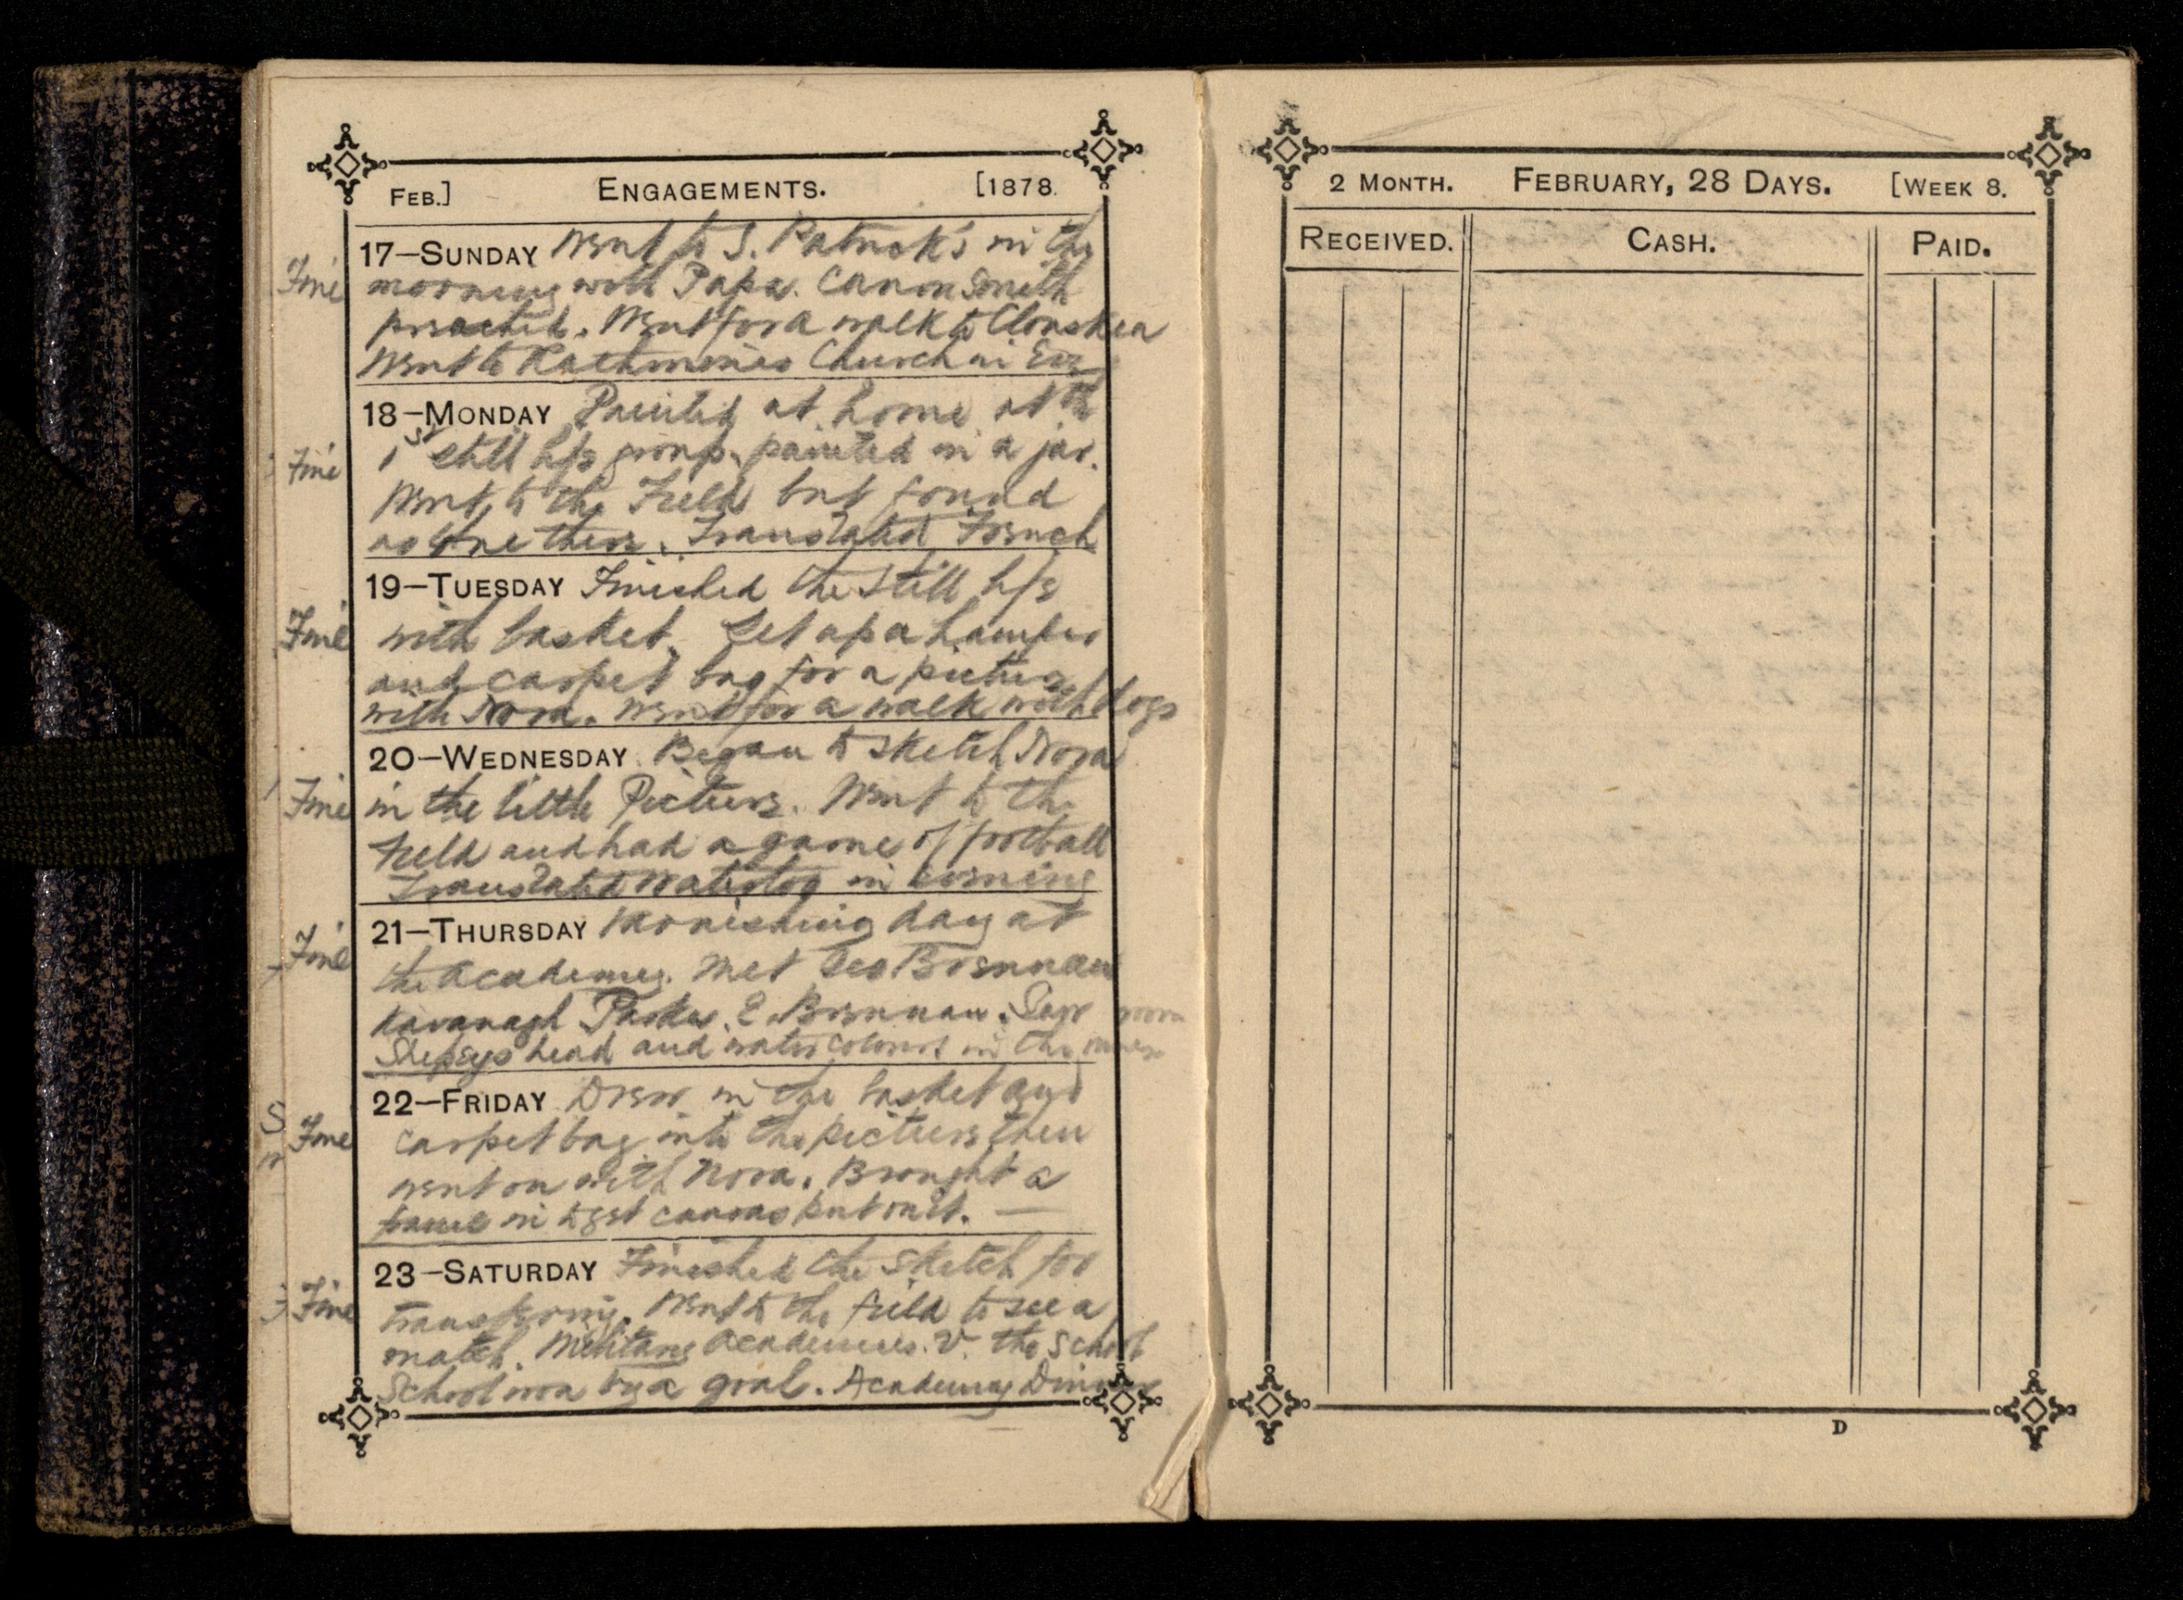 FEB.] ENGAGEMENTS. [1878.
17—SUNDAY Went to S. Patrick's in the
Fine morning with Papa. Canon Smith
preached. Went for a walk to Clonskea
Went to Rathmines Church in Evg
18—MONDAY Painted at home at the
Fine 1st still life group. painted in a jar.
Went to the Field but found
no one there. Translated French
19—TUESDAY Finished the still life
Fine with basket. Set up a hamper
and carpet bag for a picture
with Nora. Went for a walk with dogs
20—WEDNESDAY Began to sketch Nora
Fine in the little Picture. Went to the
field and had a game of football
Translated Waterloo in evening
21—THURSDAY Varnishing day at
Fine the Academy. Met Geo Brennan
Kavanagh Parker. E. Brennan. Saw
Shepsys head and watercolours in the room
22—FRIDAY Drew in the basket and
Fine carpet bag into the picture then
went on with Nora. Brought a
frame in to get canvas put on it. —
23—SATURDAY Finished the sketch for
Fine transferring. Went to the field to see a
match. Military Academies. V. the School
School won by a goal. Academy Dinner
2 MONTH. FEBRUARY, 28 DAYS. [WEEK 8.
RECEIVED. CASH. PAID.
D